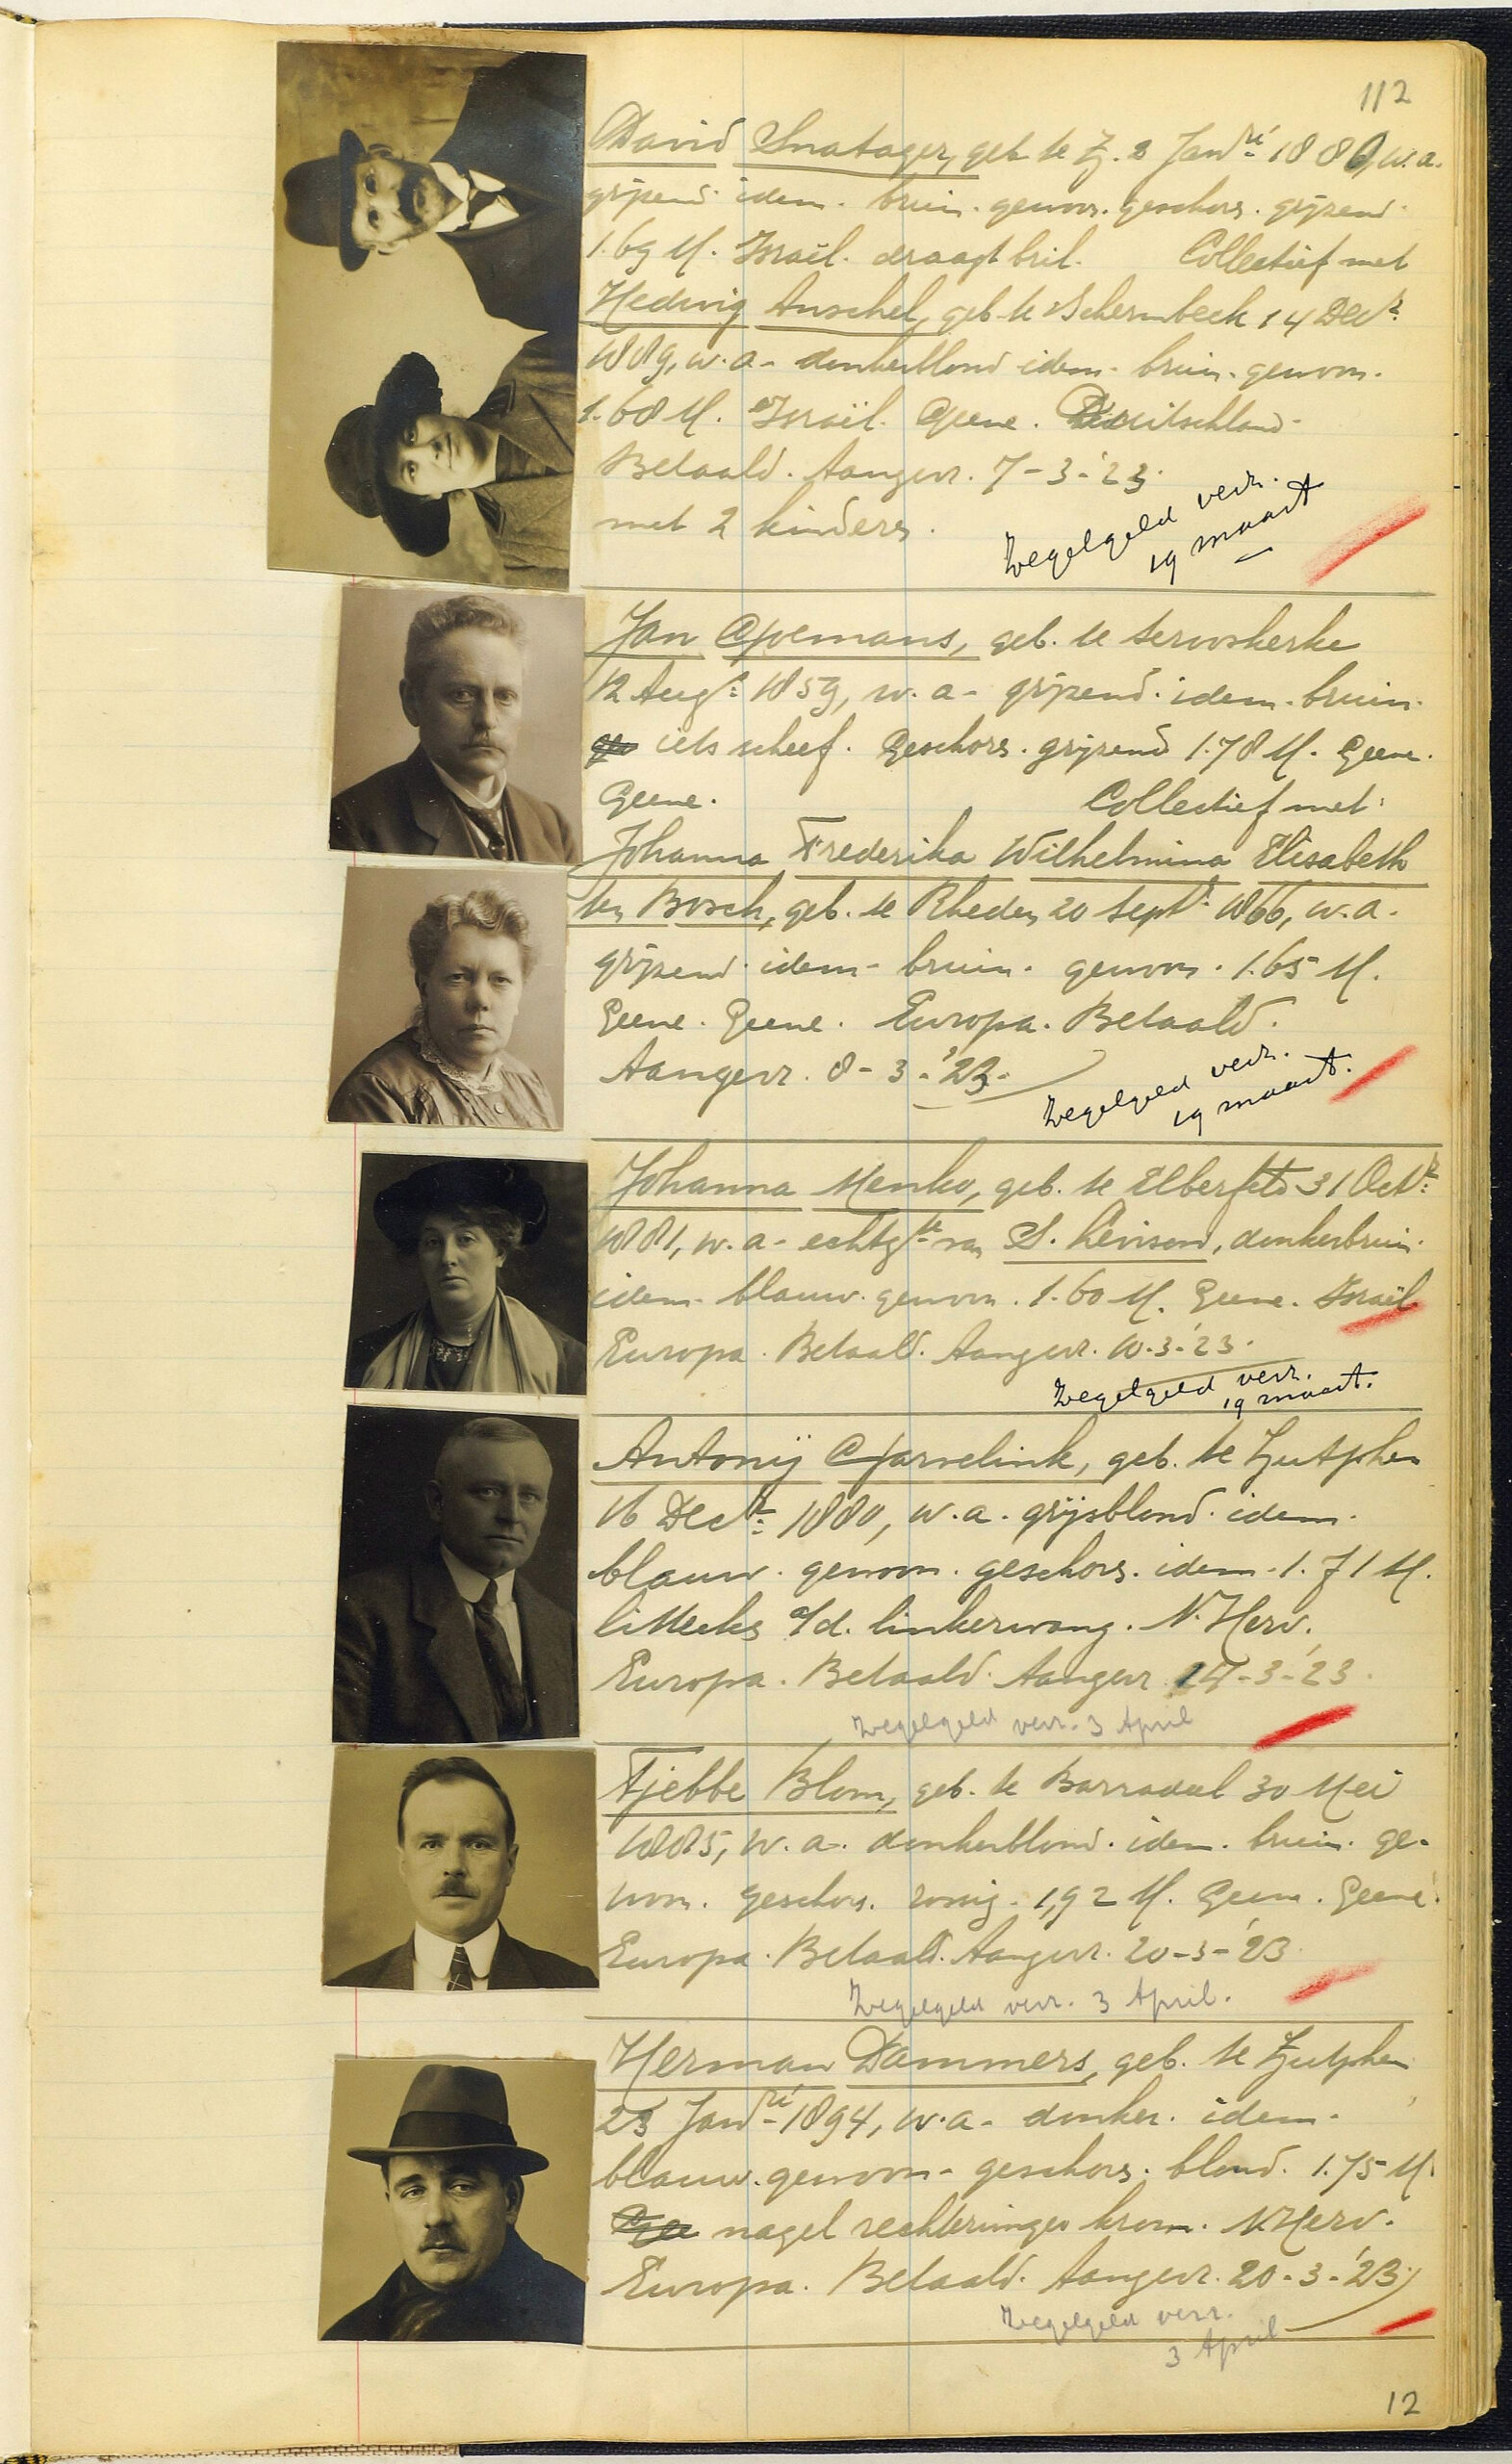 112
David Snatager, geb. te Z. 2 Jan.ri 1880, w.a.
grijzend. idem. bruin. gewoon. geschors. grijzend.
1.69 M. Israël. draagt bril. Collectief met
Hedwig Anschel, geb. te Schermbeck 14 Decr.
1889, w.a. donkerblond idem. bruin. gewoon.
1.68 M. Israël. Geene. Duitschland.
Betaald. Aangevr. 7-3-'23.
met 2 kinders.
Zegelgeld verr.
19 maart
Jan Goemans, geb. te Serooskerke
12 Augs. 1859, w.a. grijzend. idem. bruin.
iets scheef. Geschors. grijzend 1.78 M. Geene.
Geene. Collectief met:
Johanna Frederika Wilhelmina Elisabeth
ten Bosch, geb. te Rheden 20 Septr. 1866, w.a.
grijzend. idem. bruin. gewoon. 1.65 M.
Geene. Geene. Europa. Betaald.
Aangevr. 8-3-'23.
Zegelgeld verr.
19 maart.
Johanna Menko, geb. te Elberfeld 31 Octr.
1881, w.a. echtgte. van S. Levison, donkerbruin.
idem. blauw. gewoon. 1.60 M. Geene. Israël
Europa. Betaald. Aangevr. 10-3-'23.
Zegelgeld verr.
19 maart.
Antonij Garvelink, geb. te Zutphen
16 Decr. 1880, w.a. grijsblond. idem.
blauw. gewoon. geschors. idem. 1.71 M.
litteeks o/d. linkerwang. N. Herv.
Europa. Betaald. Aangevr. 14-3-'23.
Zegelgeld verr. 3 April
Tjebbe Blom, geb. te Barradeel 30 Mei
1885, w.a. donkerblond. idem. bruin. ge-
woon. geschors. rossig. 1,92 M. Geene. Geene.
Europa. Betaald. Aangevr. 20-3-'23.
Zegelgeld verr. 3 April.
Herman Dammers, geb. te Zutphen
23 Jan.ri 1894, w.a. donker. idem.
blauw. gewoon. geschors. blond. 1.75 M.
nagel rechterringer krom. N. Herv.
Europa. Betaald. Aangevr. 20-3-'23.
Zegelgeld verr.
3 April
12